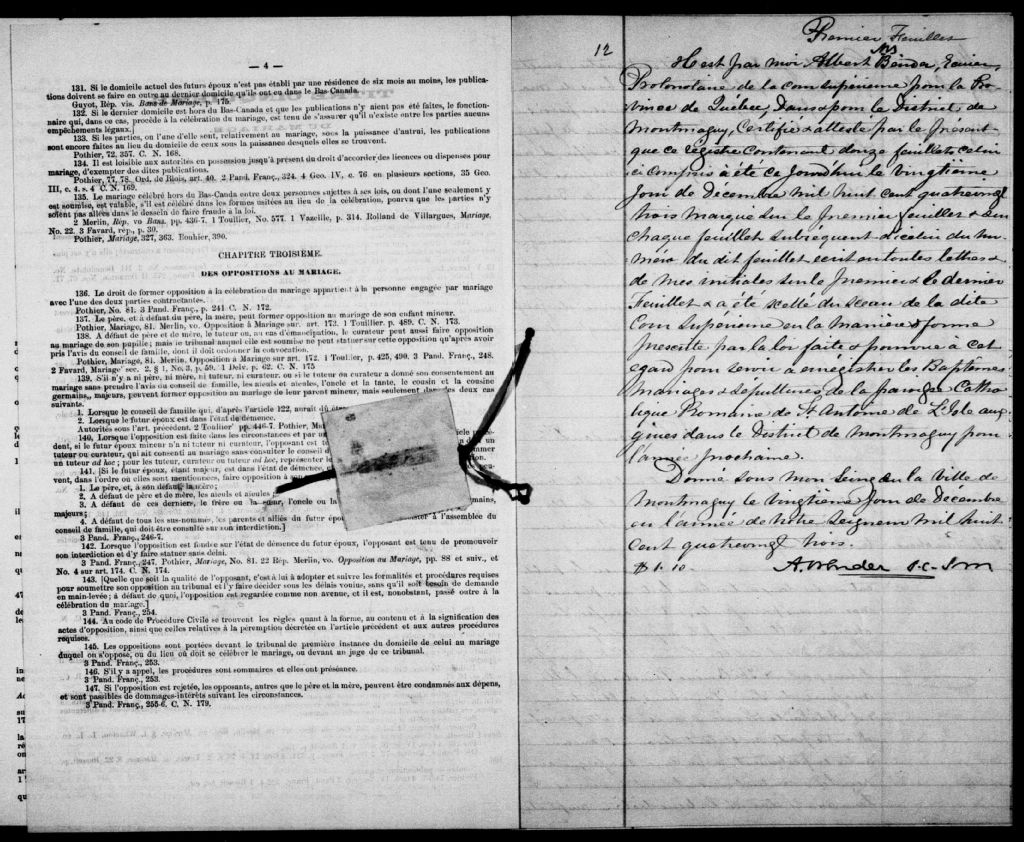 — 4 —
131. Si le domicile actuel des futurs époux n'est pas établi par une résidence de six mois au moins, les publica-
tions doivent se faire en outre au dernier domicile qu'ils ont eu dans le Bas Canada.
Guyot, Rép. vis. Bans de Mariage, p. 175.
132. Si le dernier domicile est hors du Bas-Canada et que les publications n'y aient pas été faites, le fonction-
naire qui, dans ce cas, procède à la célébration du mariage, est tenu de s'assurer qu'il n'existe entre les parties aucuns
empêchements légaux.]
133. Si les parties, ou l'une d'elle sent, relativement au mariage, sous la puissance d'autrui, les publications
sont encore faites au lieu du domicile de ceux sous la puissance desquels elles se trouvent.
Pothier, 72, 357. C. N. 168.
134. Il est loisible aux autorités en possession jusqu'à présent du droit d'accorder des licences ou dispenses pour
mariage, d'exempter des dites publications.
Pothier, 77, 78. Ord. de Blois, art. 40. 2 Pand. Franç., 324. 4 Geo. IV, c. 76 en plusieurs sections, 35 Geo.
III, c. 4. s. 4 C. N. 169.
135. Le mariage célébré hors du Bas-Canda entre deux personnes sujettes à ses lois, ou dont l'une seulement y
est soumise, est valable, s'il est célébré dans les formes usitées au lieu de la célébration, pourvu que les parties n'y
soient pas allées dans le dessein de faire fraude à la loi.
2 Merlin, Rép. vo Bans. pp. 436-7. 1 Toullier, No. 577. 1 Vazeille, p. 314. Rolland de Villargues, Mariage,
No. 22. 3 Favard, rép., p. 30.
Pothier, Mariage, 327, 363. Bouhier, 390.
CHAPITRE TROISIÈME.
DES OPPOSITIONS AU MARIAGE.
136. Le droit de former opposition à la célébration du mariage appartient à la personne engagée par mariage
avec l'une des deux parties contractantes.
Pothier, No. 81. 3 Pand. Franç., p. 241 C. N. 172.
137. Le père, et à défaut du père, la mère, peut former opposition au mariage de son enfant mineur.
Pothier, Mariage, 81. Merlin, vo. Opposition à Mariage sur. art. 173. 1 Toullier p. 489. C. N. 173.
138. A défaut de père et de mère, le tuteur ou, au cas d'émancipation, le curateur peut aussi faire opposition
au mariage de son pupille; mais le tribunal auquel elle est soumise ne peut statuer sur cette opposition qu'après avoir
pris l'avis du conseil de famille, dont il doit ordonner la convocation.
Pothier, Mariage, 81. Merlin, Opposition à Mariage sur art. 172. 1 Toullier, p. 425, 490. 3 Pand. Franç., 248.
2 Favard, Mariage sec. 2. § 1, No. 3, p. 59. 1 Delv. p. 62. C. N. 175
139. S'il n'y a ni père, ni mère, ni tuteur, ni curateur, ou si le tuteur ou curateur a donné son consentement au
mariage sans prendre l'avis du conseil de famille, les aïeuls et aïeules, l'oncle et la tante, le cousin et la cousine
germains, majeurs, peuvent former opposition au mariage de leur parent mineur, mais seulement dans les deux cas
suivants.
1. Lorsque le conseil de famille qui, d'après l'article 122, aurait dû
2. Lorsque le futur époux est dans l'état de démence.
Autorités sous l'art. précédent. 2 Toullier pp. 446-7. Pothier,
140. Lorsque l'opposition est faite dans les circonstances et par
dent, si le futur époux mineur n'a ni tuteur ni curateur, l'opposant
tuteur ou curateur, qui ait consenti au mariage sans consulter le conseil
un tuteur ad hoc; pour les tuteur, curateur ou tuteur ad hoc, représenter
141. [Si le futur époux, étant majeur, est dans l'état de démence,
vent, dans l'ordre où elles sont mentionnées, faire opposition
1. Le père, et, à son défaut, la mère;
2. A défaut de père et de mère, les aïeuls et aïeules
3. A défaut de ces derniers, le frère ou la sœur, l'oncle ou la mains,
majeurs;
4. A défaut de tous les sus-nommés, les parents et alliés du futur à l'assemblée du
conseil de famille, qui doit être consulté sur son interdiction.]
3 Pand. Franç., 246-7.
142. Lorsque l'opposition est fondée sur l'état de démence du futur époux, l'opposant est tenu de promouvoir
son interdiction et d'y faire statuer sans délai.
3 Pand. Franç., 247. Pothier, Mariage, No. 81. 22 Rép. Merlin, vo. Opposition au Mariage, pp. 88 et suiv., et
No. 4 sur art. 174. C. N. 174.
143. [Quelle que soit la qualité de l'opposant, c'est à lui à adopter et suivre les formalités et procédures requises
pour soumettre son opposition au tribunal et l'y faire décider sous les délais voulus, sans qu'il soit besoin de demande
en main-levée; à défaut de quoi, l'opposition est regardée comme non avenue, et il est, nonobstant, passé outre à la
célébration du mariage.]
3 Pand. Franç., 254.
144. Au code de Procédure Civile se trouvent les règles quant à la forme, au contenu et à la signification des
actes d'opposition, ainsi que celles relatives à la péremption décrétée en l'article précédent et aux autres procédures
requises.
145. Les oppositions sont portées devant le tribunal de première instance du domicile de celui au mariage
duquel on s'oppose, ou du lieu où doit se célébrer le mariage, ou devant un juge de ce tribunal.
3 Pand. Franç., 253.
146. S'il y a appel, les procédures sont sommaires et elles ont préséance.
3 Pand. Franç., 253.
147. Si l'opposition est rejetée, les opposants, autres que le père et la mère, peuvent être condamnés aux dépens,
et sont passibles de dommages-intérêts suivant les circonstances.
3 Pand. Franç., 255-6. C. N. 179.
12
Premier Feuillet
Il est par moi Albert Bender, Ecuier
Protonotaire de la cour supérieure pour la Pro-
vince de Québec, Dans & pour le District de
Montmagny, Certifié & attesté par le présent
que ce régistre contenant douze feuillets celui
ici compris a été ce jourd'hui le vingtième
jour de Décembre mil huit cent quatrevingt
trois marqué sur le premier feuillet & sur
chaque feuillet subséquent d'icelui du nu-
méro du dit feuillet écrit en toutes lettres &
de mes initiales sur le premier & le dernier
Feuillet & a été scellé du sceau de la dite
Cour Supérieure en la manière & forme
prescrite par la loi faite & pourvue à cet
égard pour servir à enrégistrer les Baptêmes
Mariages & sépultures de la paroisse Catho
lique Romaine de St Antoine de L'Isle aux
grues dans le District de Montmagny pour
l'année prochaine.
Donné sous mon seing en la ville de
Montmagny le vingtième jour de Décembre
en l'année de Notre Seigneur mil huit
cent quatrevingt trois.
$1.10. A Bender